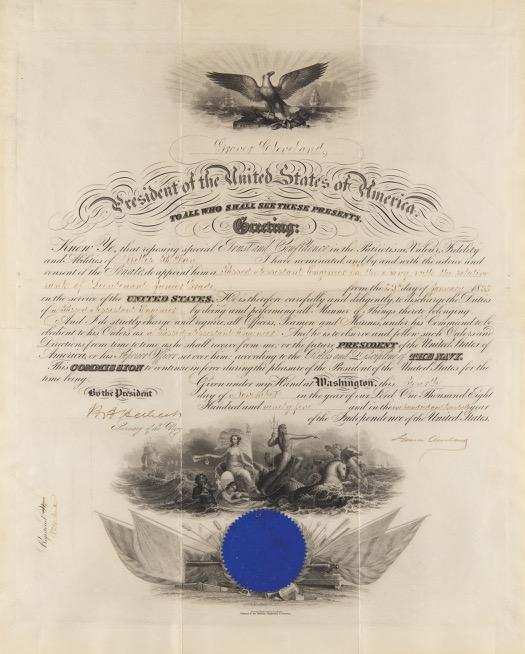 Grover Cleveland,
President of the United States of America.
TO ALL WHO SHALL SEE THESE PRESENTS,
Greeting:
Know Ye, that reposing special Trust and Confidence in the Patriotism, Valor, Fidelity
and Abilities of I have nominated and by and with the advice and
consent of the Senate, do appoint him a Assistant Engineer in the Navy, with the relative
rank of Lieutenant, junior grade, from the 29th day of January 1895
in the service of the UNITED STATES. He is therefore carefully and diligently to discharge the Duties
of a Assistant Engineer by doing and performing all Manner of Things thereto belonging.
And I do strictly charge and require all Officers, Seamen and Marines, under his Command to be
obedient to his Orders as Assistant Engineer And he is to observe and follow such Orders and
Directions from time to time as he shall receive from me, or the future PRESIDENT of the United States of
America, or his Superior Officer set over him, according to the Rules and Discipline of THE NAVY.
This COMMISSION to continue in force during the pleasure of the President of the United States for the
time being.
Given under my Hand at Washington, this
By the President
day of in the year of our Lord One Thousand Eight
Hundred and ninety five and in the one hundred and year
of the Independence of the United States.
H A Herbert
Secretary of the Navy
Grover Cleveland
Registered No.